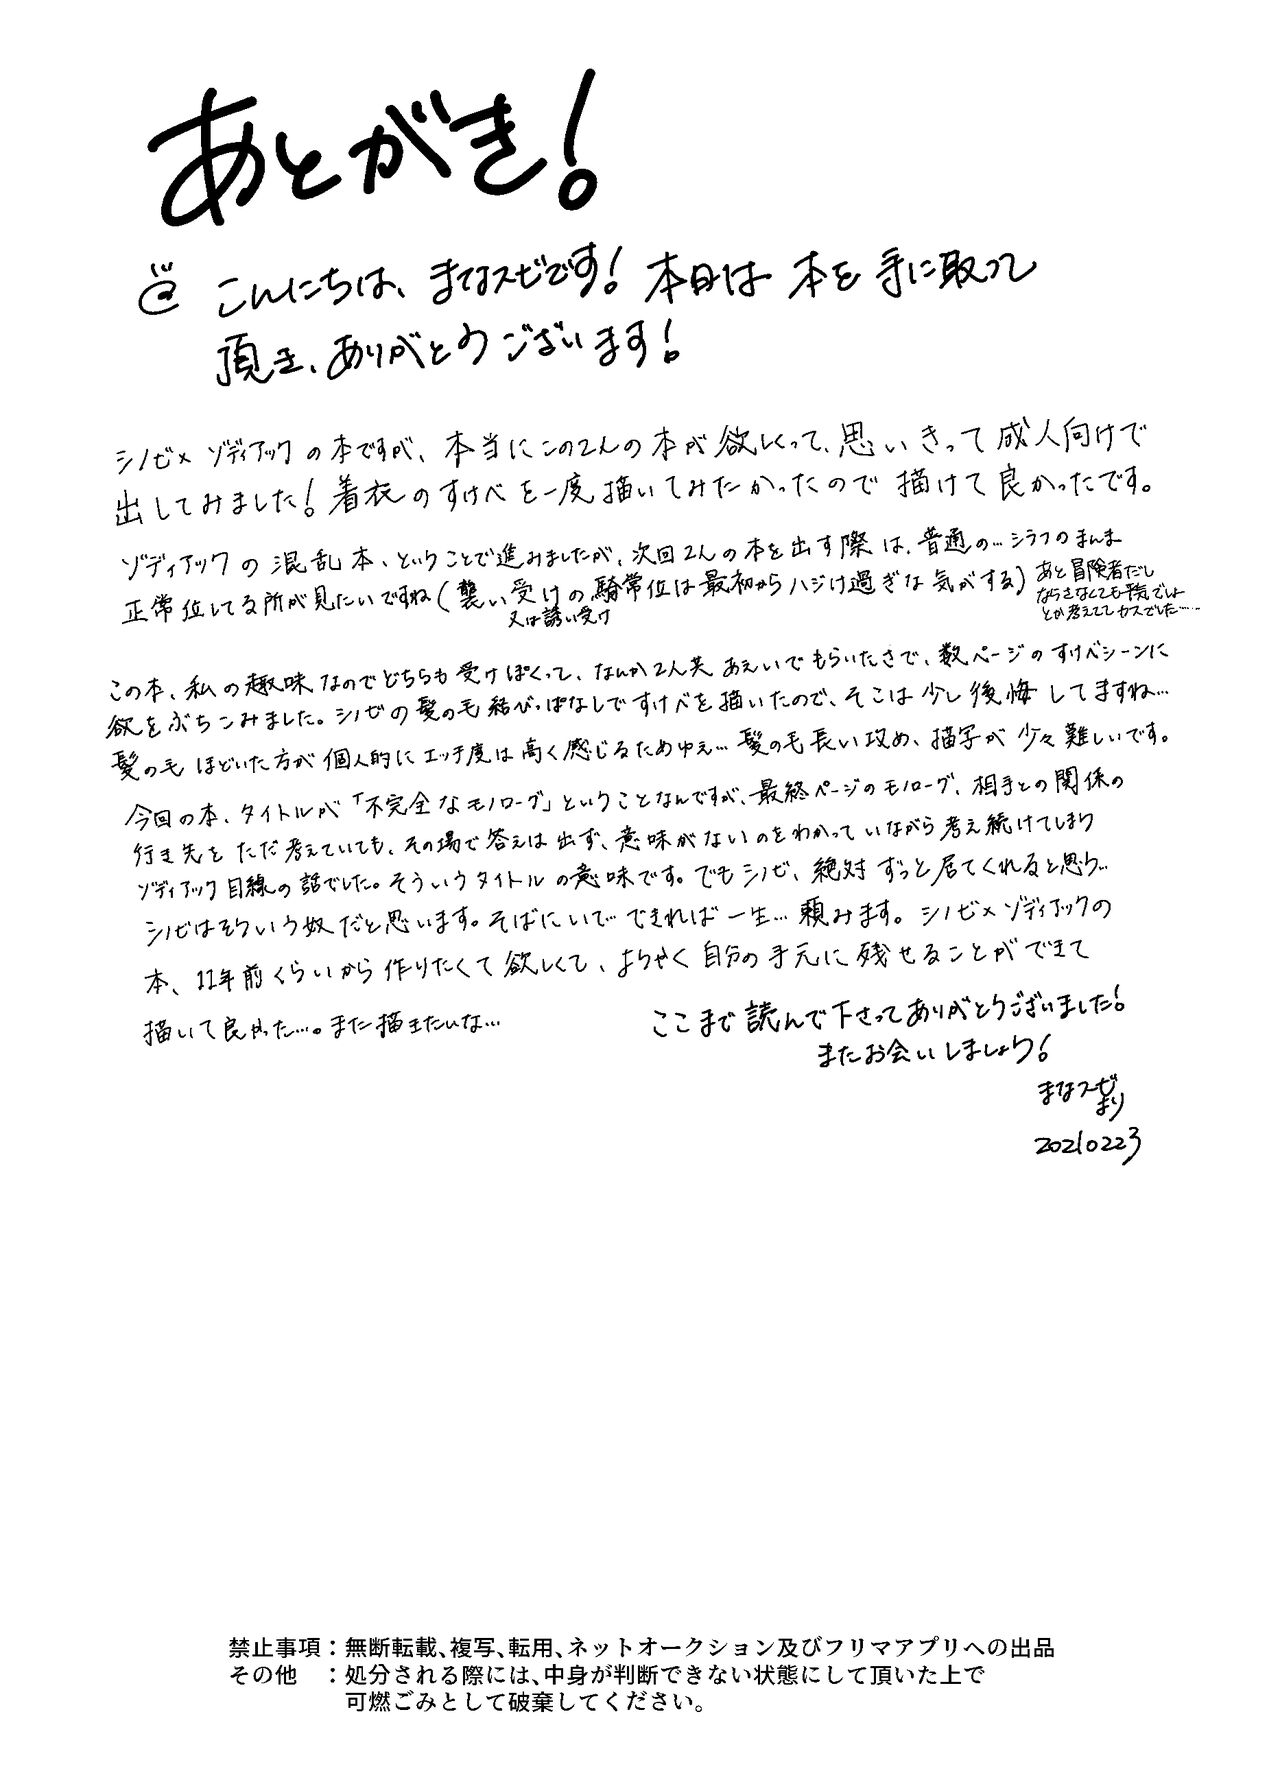 あとがき!
こんにちは、まなスゼです! 本日は 本を 手に取って
頂き、ありがとうございます!
シノビ×ゾディアックの本ですが、本当にこの2人の本が欲しくって、思いきって成人向けで
出してみました! 着衣のすけべを一度描いてみたかったので描けて良かったです。
ゾディアックの混乱本、ということで進みましたが、次回2人の本を出す際は、普通の…シラフのまんま
正常位してる所が見たいですね(襲い受けの騎常位は最初からハジけ過ぎな気がする)
又は誘い受け
あと冒険者だし
ならさなくても平気でしょ
とか考えててカスでした……
この本、私の趣味なのでどちらも受けぽくって、なんか2人共あえいでもらいたさで、数ページのすけべシーンに
欲をぶちこみました。シノビの髪の毛結びっぱなしですけべを描いたので、そこは少し後悔してますね…
髪の毛ほどいた方が個人的にエッチ度は高く感じるためゆえ…髪の毛長い攻め、描写が少々難しいです。
今回の本、タイトルが「不完全なモノローグ」ということなんですが、最終ページのモノローグ、相手との関係の
行き先をただ考えていても、その場で答えは出ず、意味がないのをわかっていながら考え続けてしまう
ゾディアック目線の話でした。そういうタイトルの意味です。でもシノビ、絶対ずっと居てくれると思う…
シノビはそういう奴だと思います。そばにいてできれば一生…頼みます。シノビ×ゾディアックの
本、11年前くらいから作りたくて欲しくて、ようやく自分の手元に残せることができて
描いて良かった…。また描きたいな…
ここまで読んで下さってありがとうございました!
またお会いしましょう!
まなスゼ
より
20210223
禁止事項:無断転載、複写、転用、ネットオークション及びフリマアプリへの出品
その他 :処分される際には、中身が判断できない状態にして頂いた上で
可燃ごみとして破棄してください。